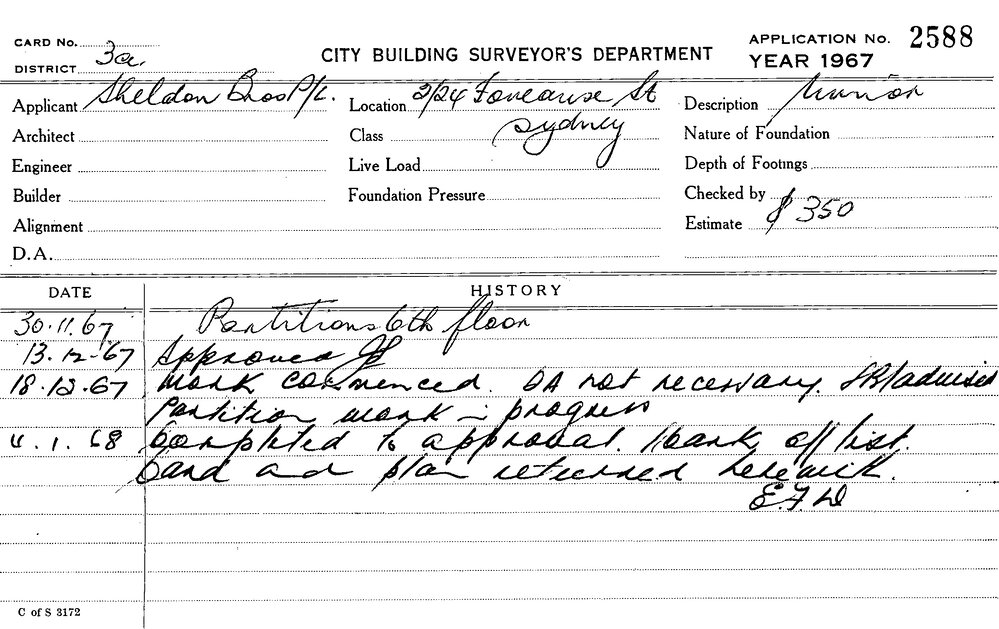 CARD No.
CITY BUILDING SURVEYOR'S DEPARTMENT
APPLICATION No. 2588
DISTRICT 3a.
YEAR 1967
Applicant Sheldon Bros P/L. Location 2/24 St Description Minor
Sydney
Architect Class Nature of Foundation
Engineer Live Load Depth of Footings
Builder Foundation Pressure Checked by
Alignment Estimate $350
D.A.
DATE HISTORY
30.11.67 Partitions 6th floor
13.12.67 Approved
18.12.67 Work commenced. DA not necessary. advised
Partition work in progress
4.1.68 Completed to approval. Mark off list.
Card and plan returned herewith.
E.F.D
C of S 3172